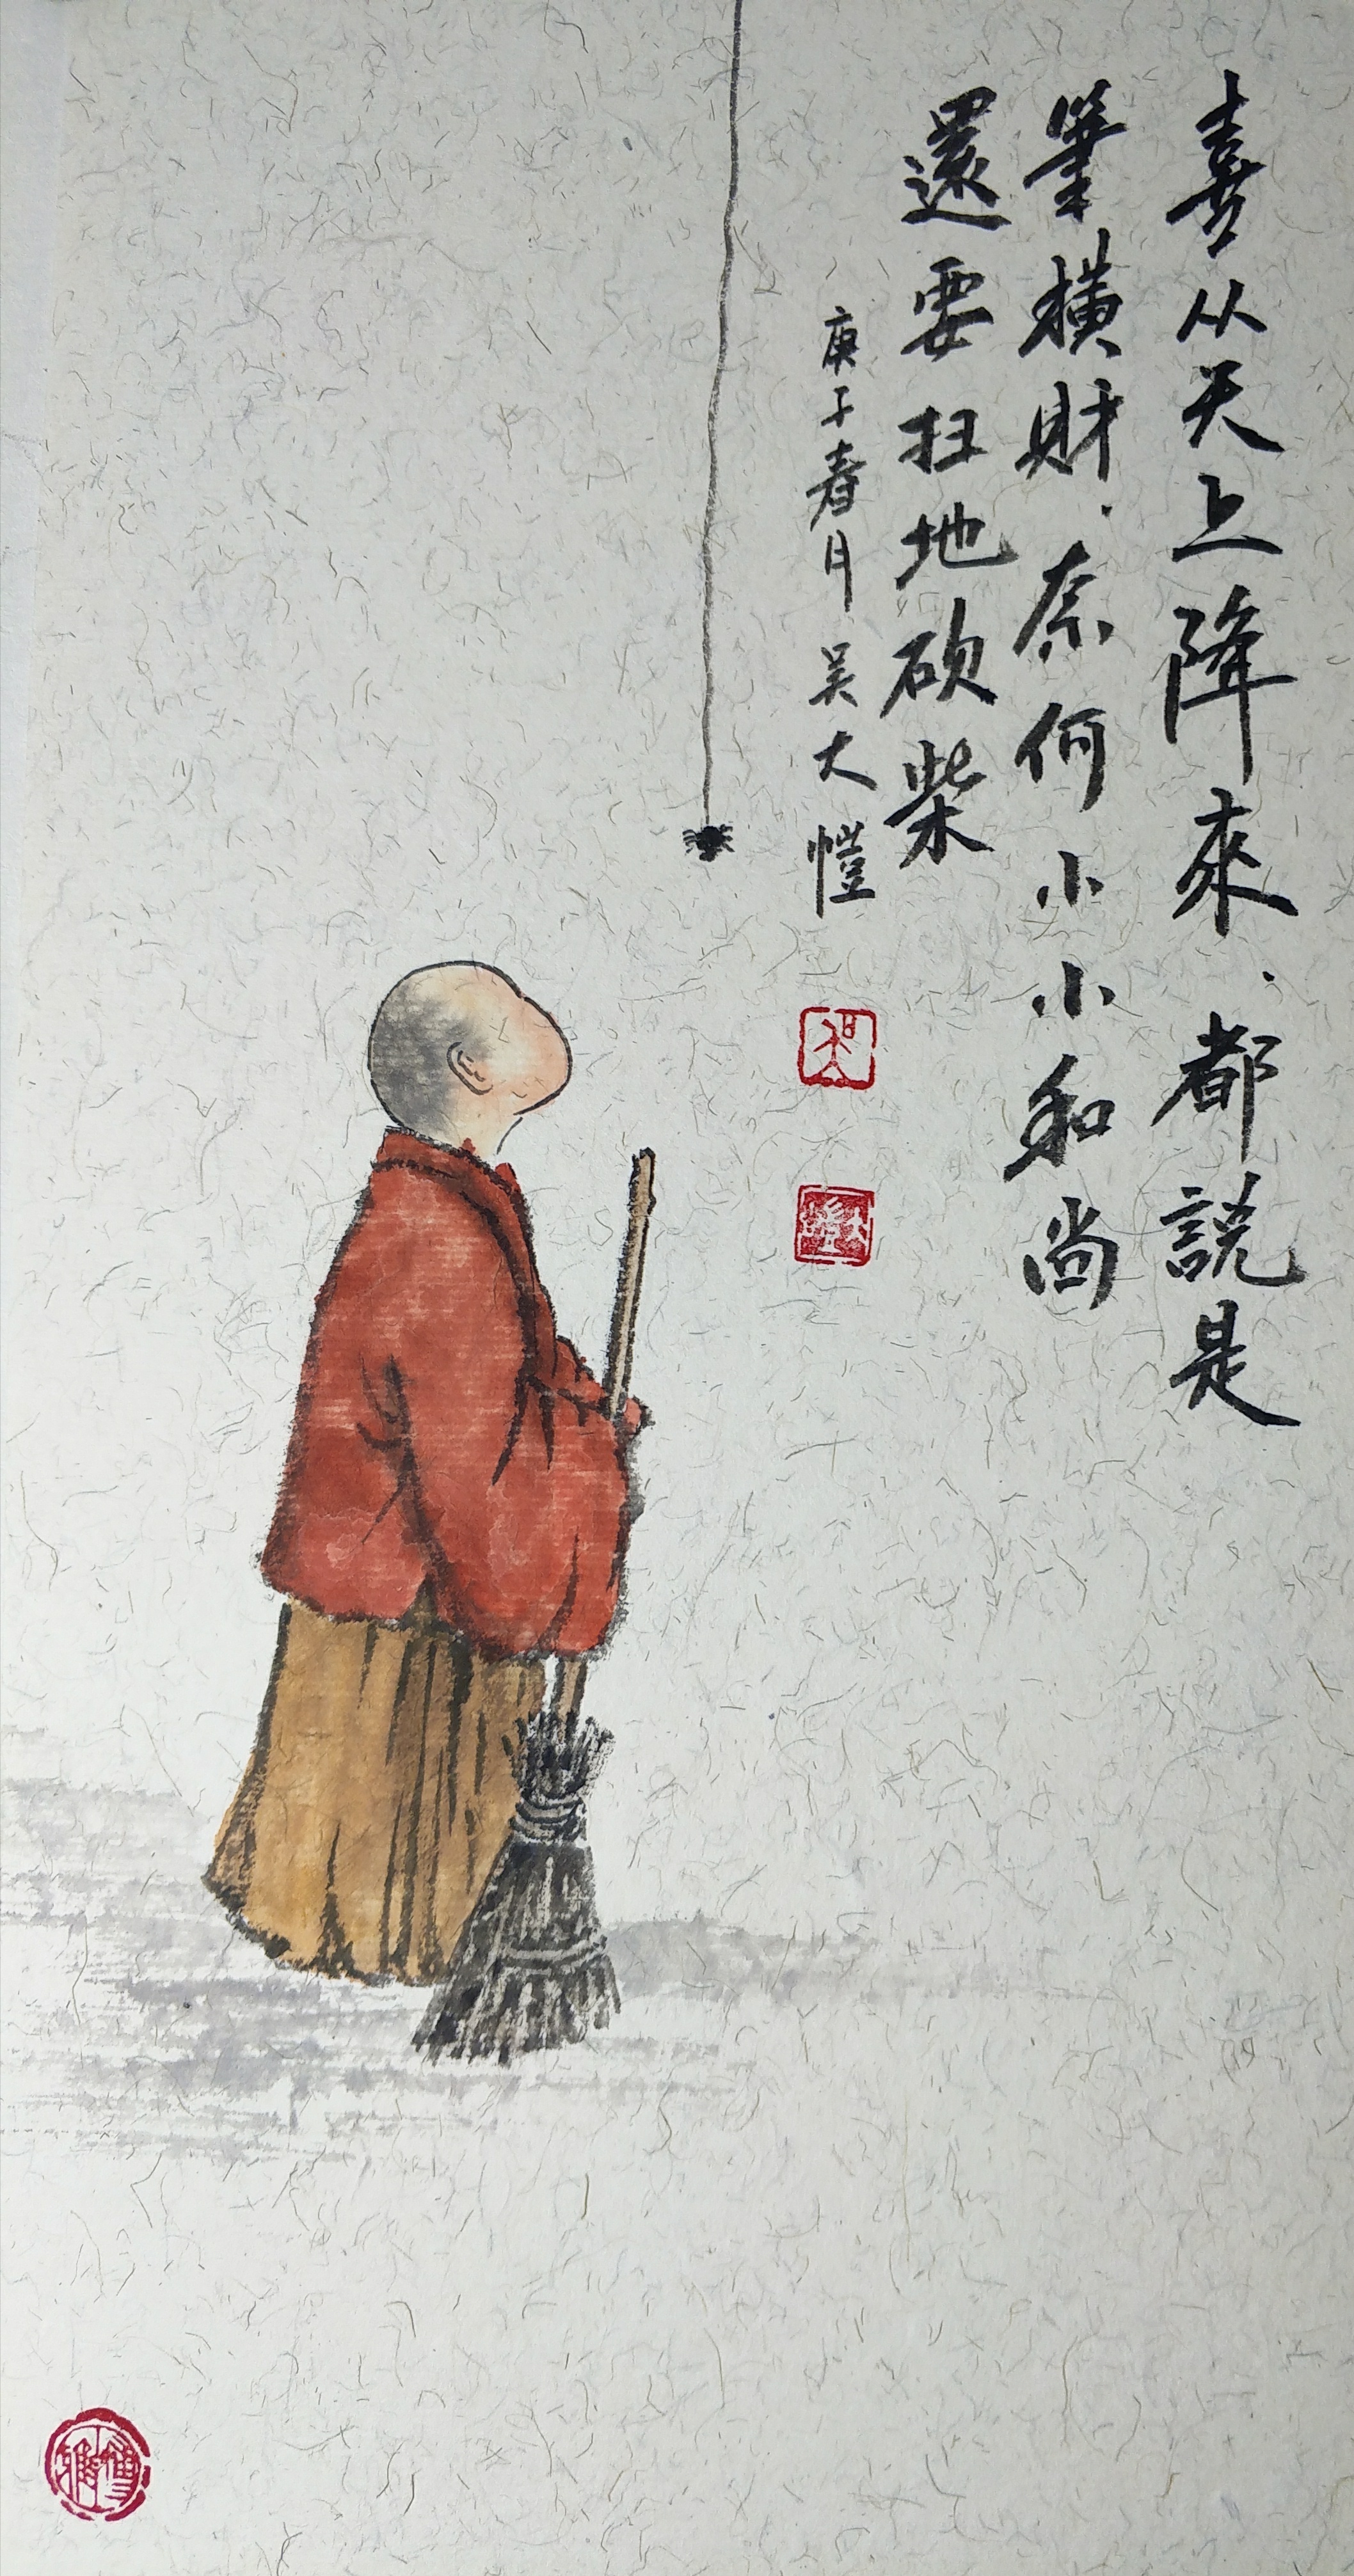 喜从天上降來.都説是
筆橫財.奈何小小和尚
還要扫地砍柴
庚子春月吴大愷